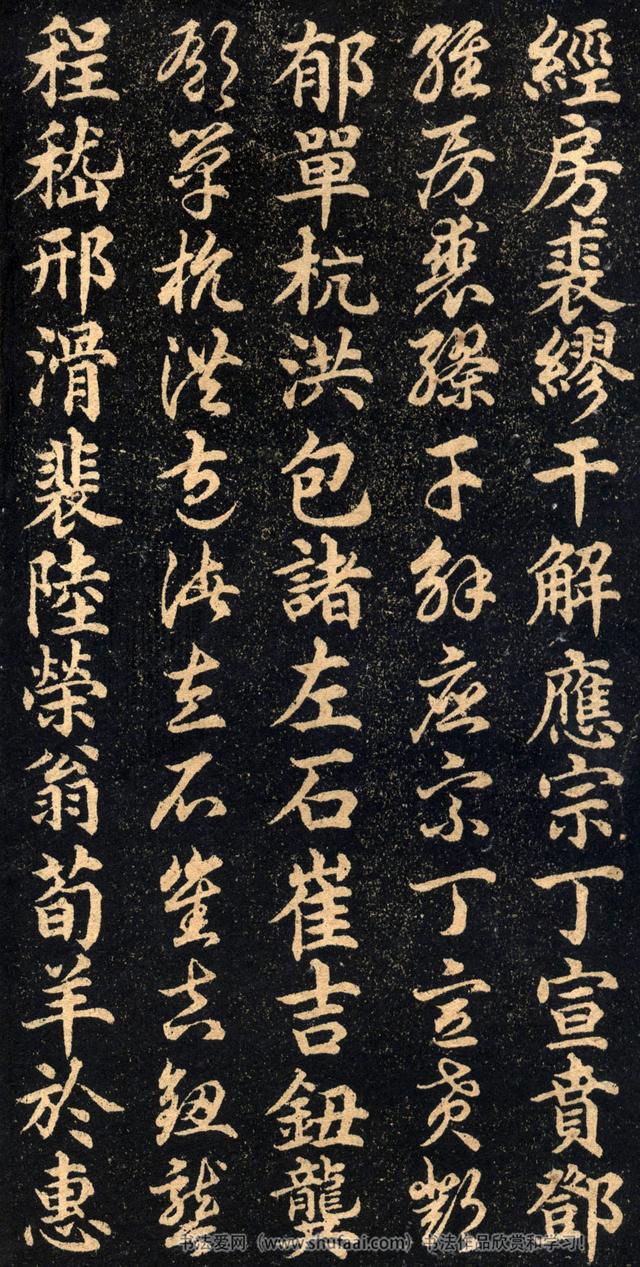 經房裘繆干解應宗丁宣賁鄧
經房裘繆干解應宗丁宣賁鄧
郁單杭洪包諸左石崔吉鈕龔
郁單杭洪包諸左石崔吉鈕龔
程嵇邢滑裴陸榮翁荀羊於惠
书法爱网（www.shufaai.com）书法作品欣赏和学习！